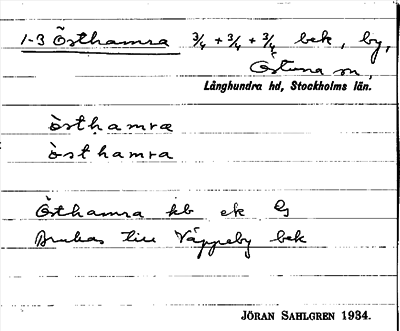 1-3 Östhamra 3/4 + 3/4 + 3/4 bek, by,
Östuna sn,
Långhundra hd, Stockholms län.
östhamra
östhamra
Östhamra kb ek
Brukas till Väppeby bek
JÖRAN SAHLGREN 1934.